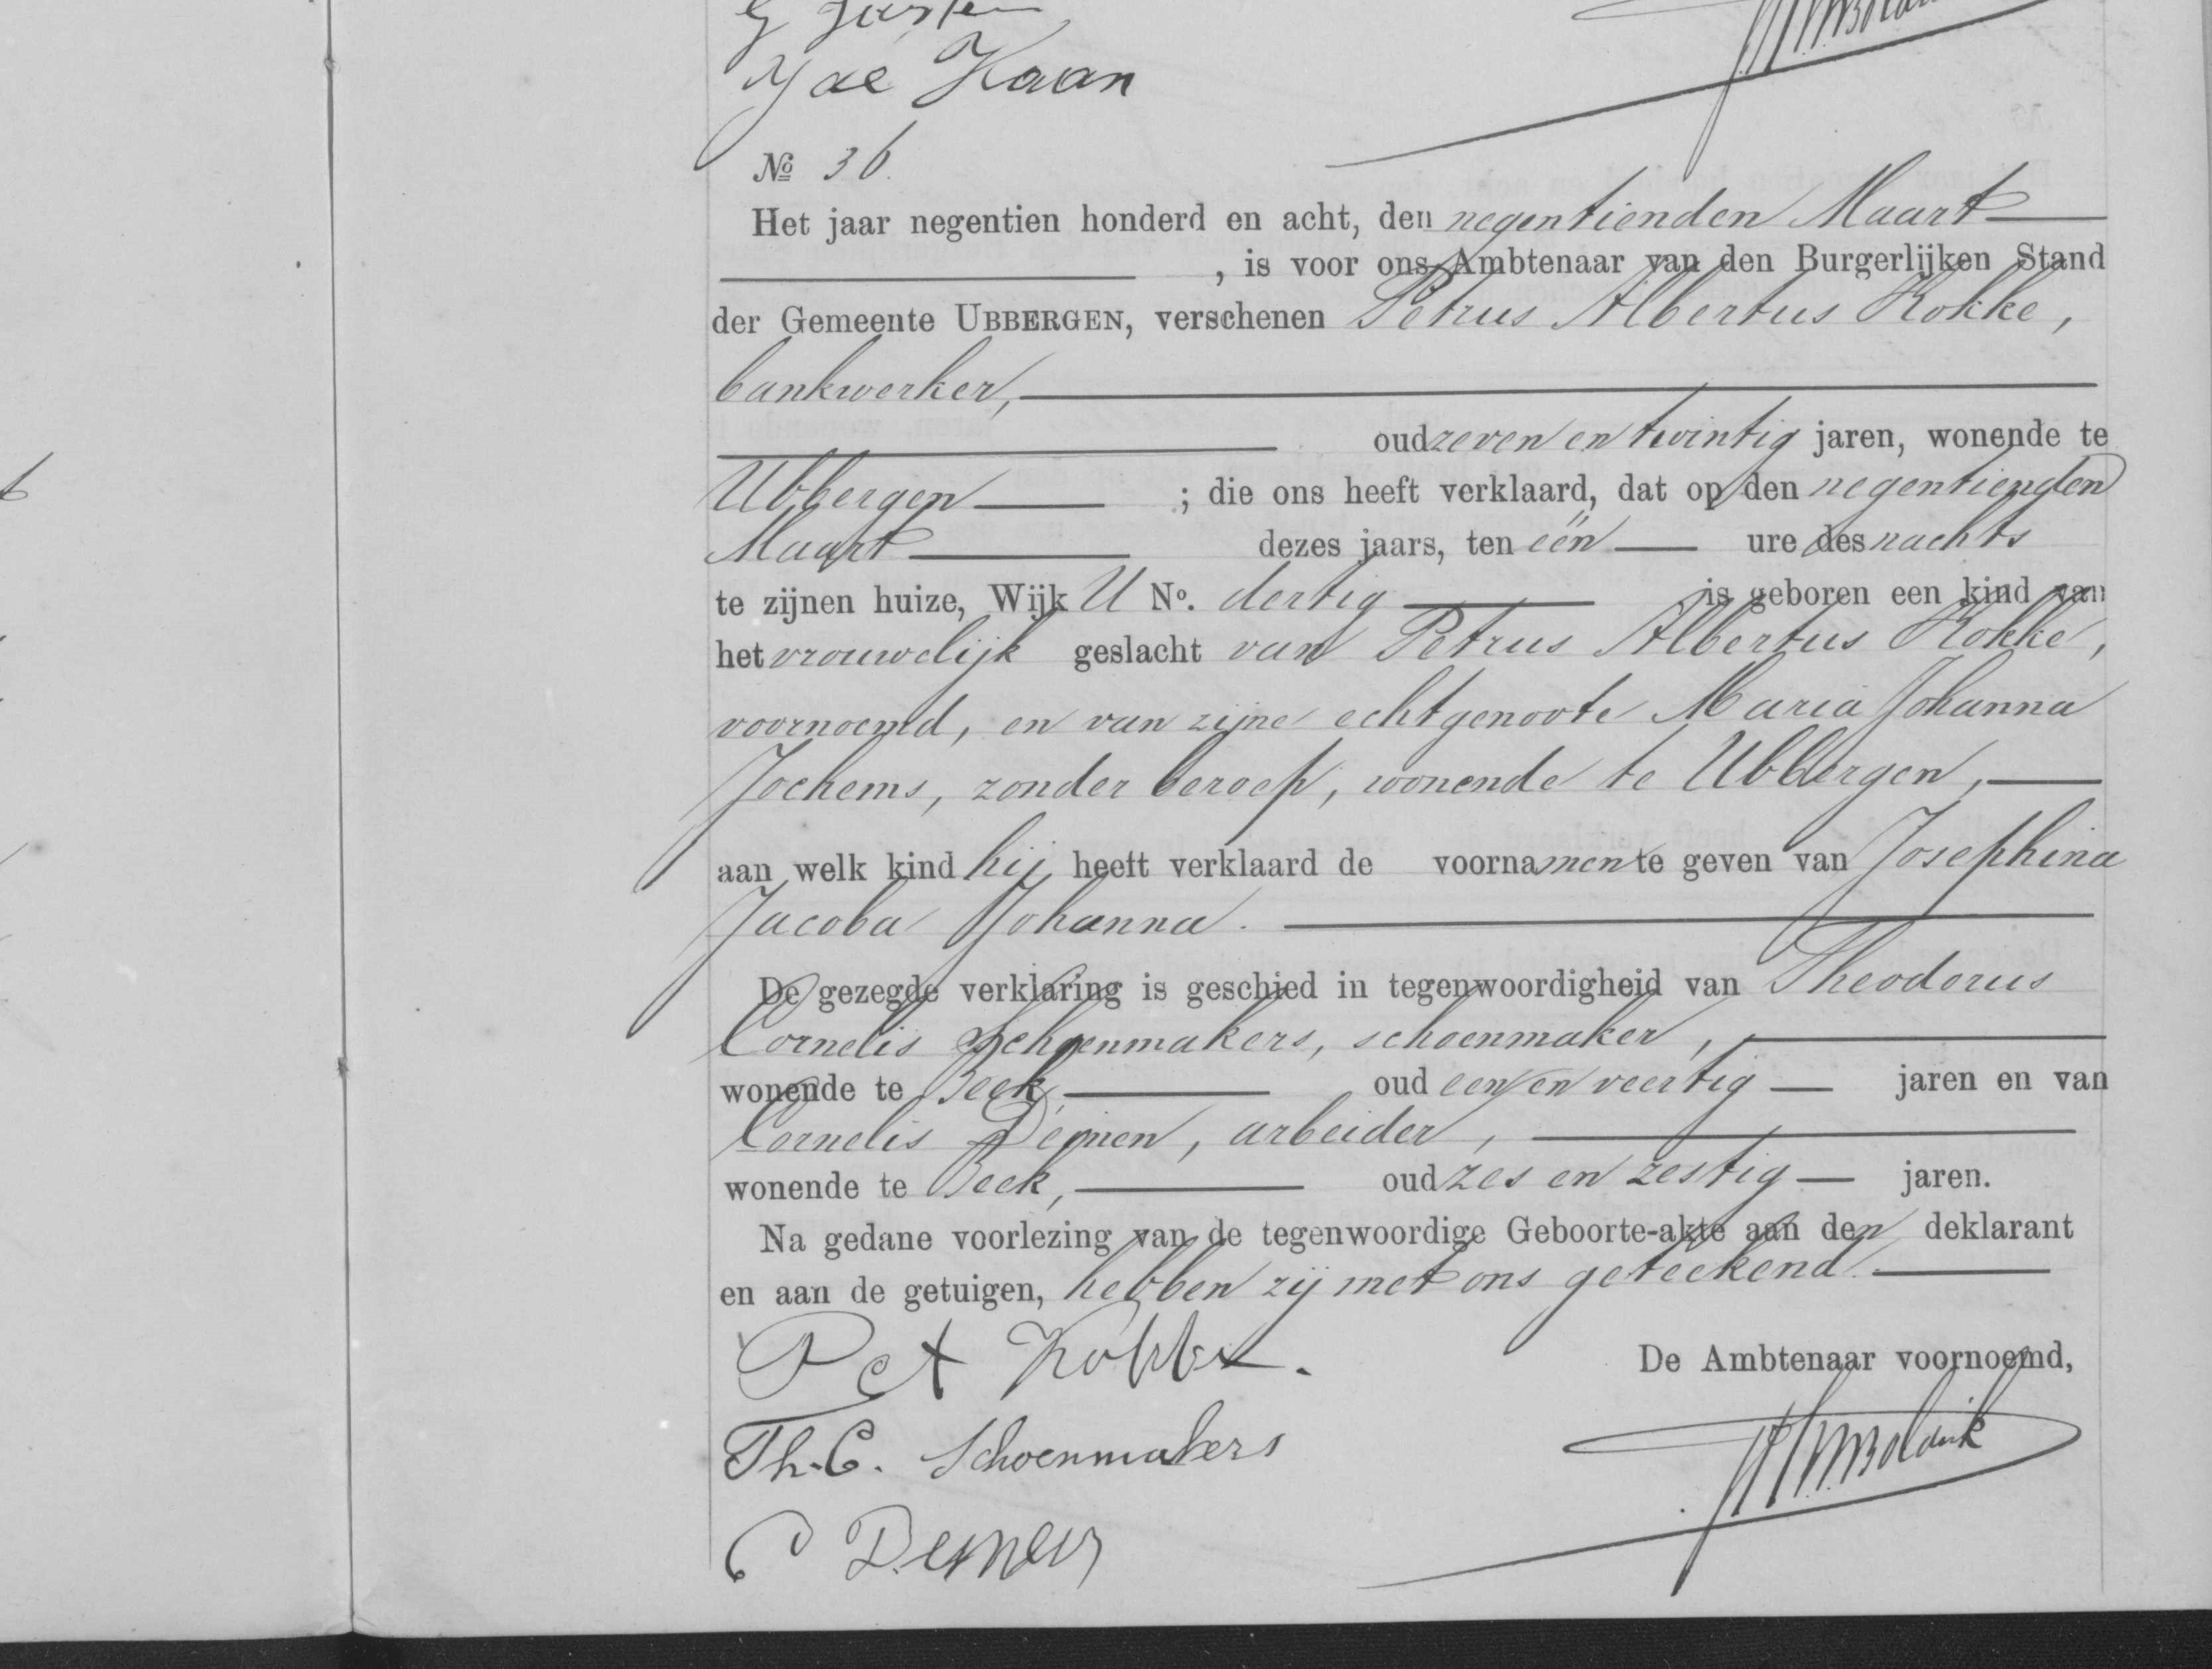 de Haan
№ 36.
Het jaar negentien honderd en acht, den negentienden Maart
, is voor ons Ambtenaar van den Burgerlijken Stand
der Gemeente UBBERGEN, verschenen Petrus Albertus Kokke,
bankwerker,
oud zeven en twintig jaren, wonende te
Ubbergen ; die ons heeft verklaard, dat op den negentienden
Maart dezes jaars, ten één ure des nachts
te zijnen huize, Wijk U No. dertig is geboren een kind van
het vrouwelijk geslacht van Petrus Albertus Kokke,
voornoemd, en van zijne echtgenoote Maria Johanna
Jochems, zonder beroep, wonende te Ubbergen,
aan welk kind hij heeft verklaard de voornamen te geven van Josephina
Jacoba Johanna.
De gezegde verklaring is geschied in tegenwoordigheid van Theodorus
Cornelis Schoenmakers, schoenmaker,
wonende te Beek, oud een en veertig jaren en van
Cornelis Dernen, arbeider,
wonende te Beek, oud zes en zestig jaren.
Na gedane voorlezing van de tegenwoordige Geboorte-akte aan den deklarant
en aan de getuigen, hebben zij met ons geteekend.
P A Kokke.
De Ambtenaar voornoemd,
Th. C. Schoenmakers
C